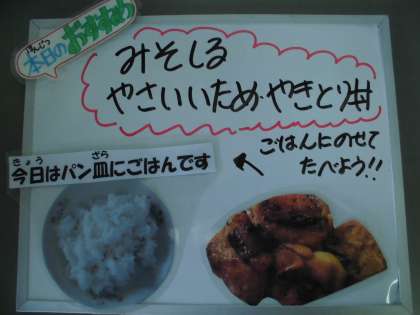 ほんじつ
本日の おすすめ
みそしる
やさいいため・やきとり丼
ごはんにのせて
たべよう!!
きょう ざら
今日はパン皿にごはんです